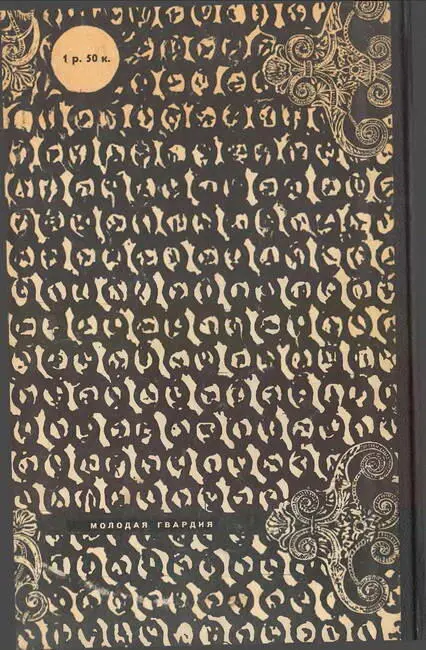 1 р. 50 к.
МОЛОДАЯ ГВАРДИЯ